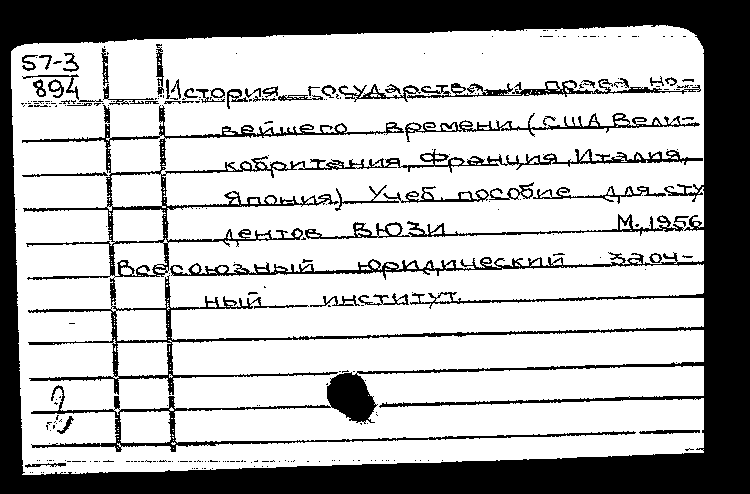 57-3
894
История государства и права но-
вейшего времени (США, Вели-
кобритения, Франция, Италия,
Япония) Учеб. пособие для сту
дентов ВЮЗИ. М., 1956
Всесоюзный юридический заоч-
ный институт.
2